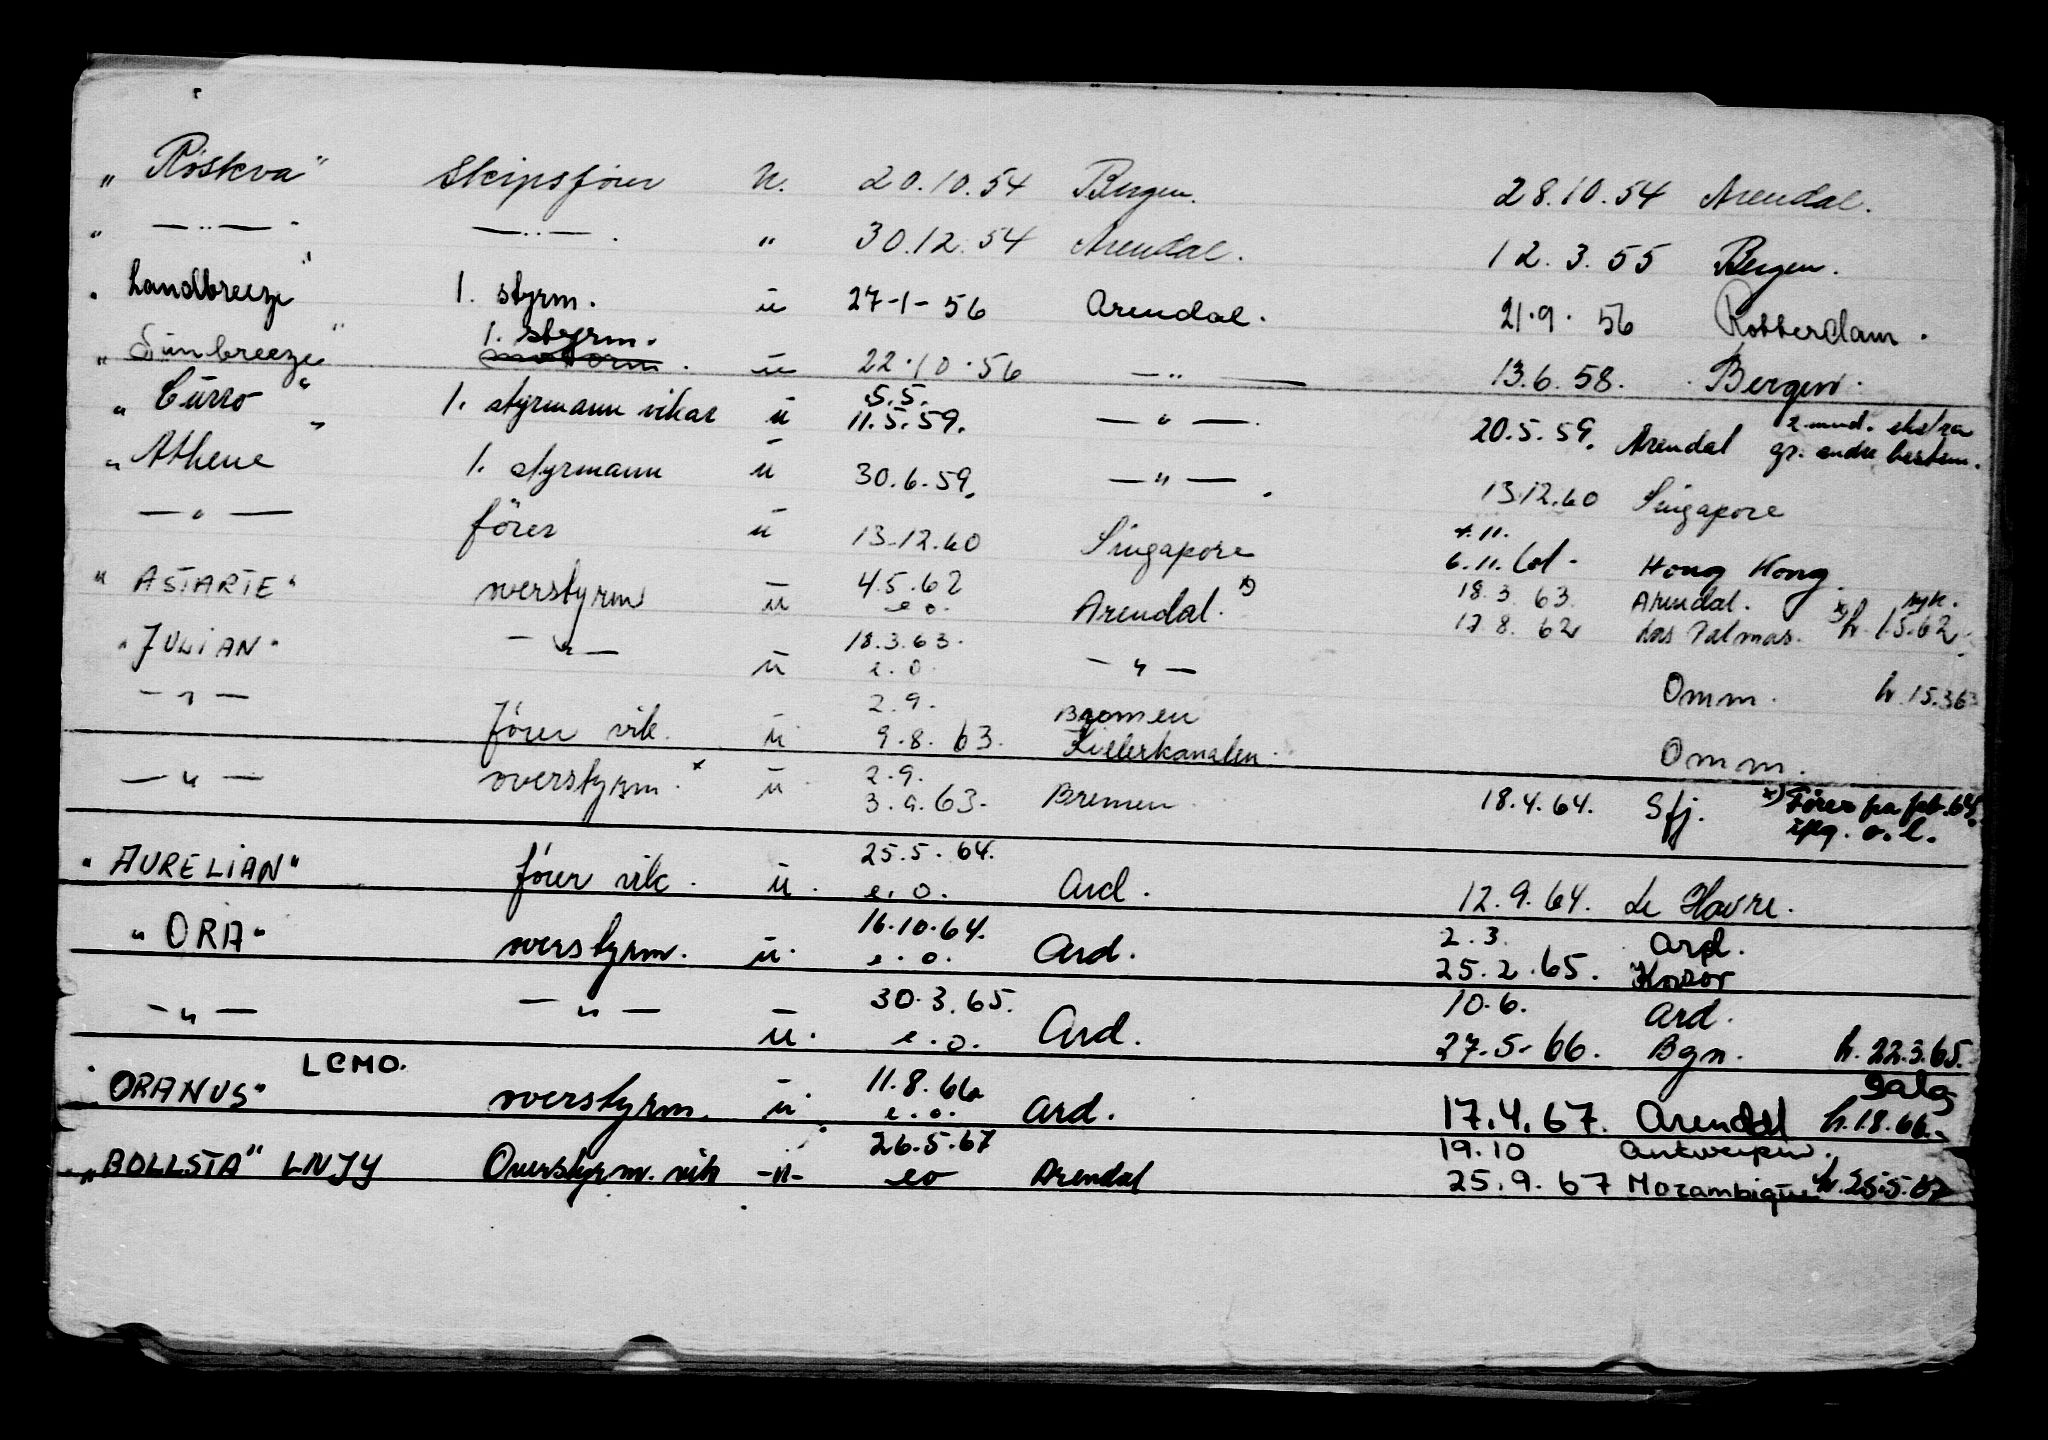 „ Röskva" Skipsförer u. 20.10.54 Bergen. 28.10.54 Arendal.
„ —„— " —„— . " 30.12.54 Arendal. 12.3.55 Bergen.
„ Landbreeze" 1. styrm. u 27-1-56 Arendal. 21.9.56 Rotterdam.
1. styrm.
„ Sunbreeze" u 22.10.56 —„— 13.6.58. Bergen.
5.5.
„ Curro" 1. styrmann vikar u 11.5.59. —„—. 20.5.59. Arendal 2. mnd. ekstra
gr. andre bestem.
„ Athene" 1. styrmann u 30.6.59. —„—. 13.12.60 Singapore
—„— förer u 13.12.60 Singapore 4.11.
6.11. Hong Kong.
" ASTARTE" overstyrm u 4.5.62 e o. Arendal. x) 18.3.63. Arendal. syk.
17.8.62 Las Palmas. x) h. 1.5.62
" JULIAN" —„— u 18.3.63. e.o. —„— Omm. h. 15.3.63
2.9. Bremen
—„— förer vik. u. 9.8.63. Kielerkanalen. Omm.
2.9.
—„— overstyrm. x u. 3.9.63. Bremen 18.4.64. Sfj. x) Förer fra
o.l.
25.5.64.
" AURELIAN" förer vik. u. e.o. Ard. 12.9.64. Le Havre.
16.10.64. 2.3. Ard.
" ORA" overstyrm. u. e.o. Ard. 25.2.65.
30.3.65. 10.6. Ard.
—„— —„— u. e.o. Ard. 27.5.66. Bgn. h. 22.3.65.
LCMO. 11.8.66 salg
" ORANUS" overstyrm. u. e.o. Ard. 17.4.67. Arendal h. 1.8.66.
26.5.67 19.10 Antwerpen.
„ BOLLSTA" LNJY Overstyrm. vik -„- eo Arendal 25.9.67 Mozambique h. 25.5.67